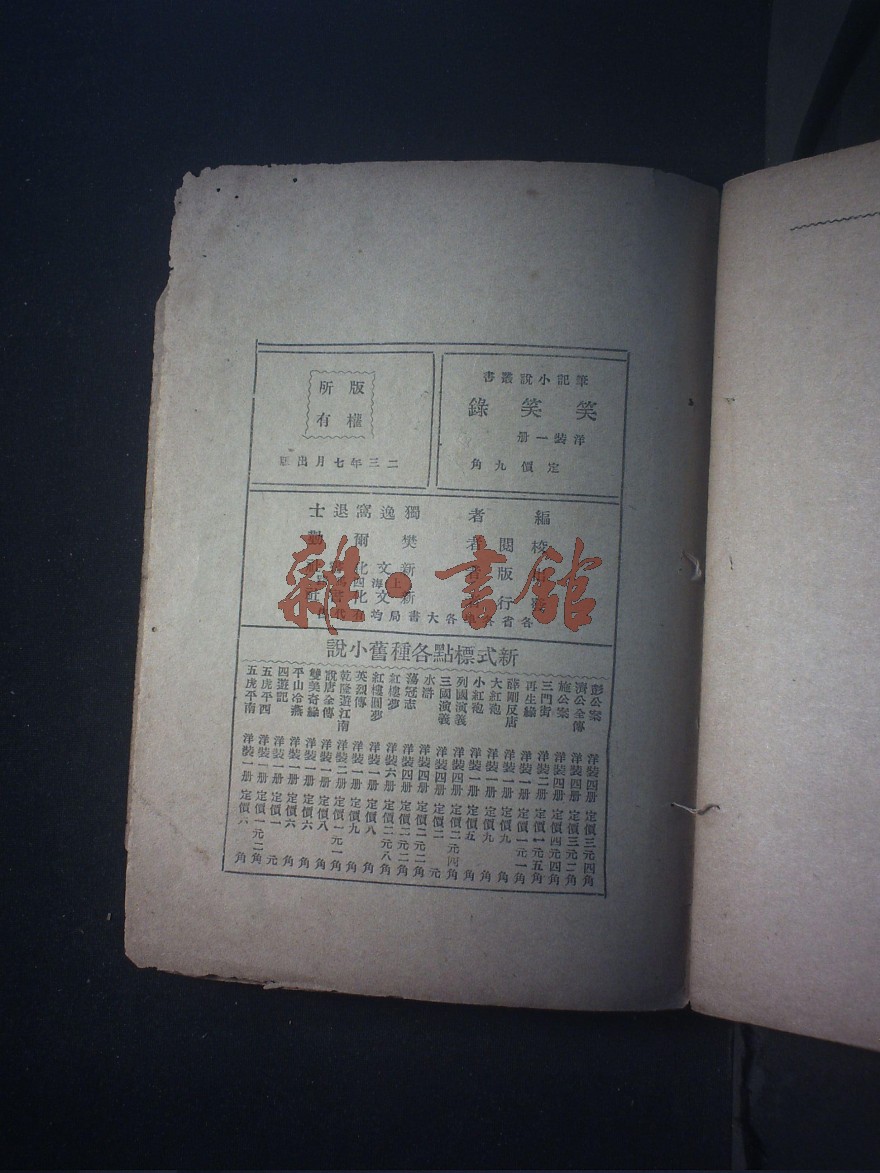 筆記小說叢書
笑笑錄
洋裝一冊
定價九角
版權
所有
二三年七月出版
編者 獨逸窩退士
校閱者 樊爾勤
版者 新文化
上海四
行 新文化
各省各大書局均有代售
雜·書館
新式標點各種舊小說
彭公案 洋裝四册 定價三元四角
濟公全傳 洋裝四册 定價三元二角
施公案 洋裝四册 定價四元四角
三門街 洋裝二册 定價一元五角
再生緣 洋裝一册 定價一元一角
薛剛反唐 洋裝一册 定價九角
大紅袍 洋裝一册 定價九角
小紅袍 洋裝一册 定價五角
列國演義 洋裝四册 定價二元四角
三國演義 洋裝四册 定價二元
水滸 洋裝四册 定價二元二角
蕩寇志 洋裝四册 定價二元二角
紅樓夢 洋裝六册 定價二元八角
紅樓圓夢 洋裝一册 定價八角
英烈傳 洋裝一册 定價九角
乾隆遊江南 洋裝二册 定價一元一角
說唐全傳 洋裝一册 定價八角
雙美奇緣 洋裝一册 定價六角
平山冷燕 洋裝一册 定價六角
四遊記 洋裝一册 定價一元
五虎平西 洋裝一册 定價一元二角
五虎平南 洋裝一册 定價六角